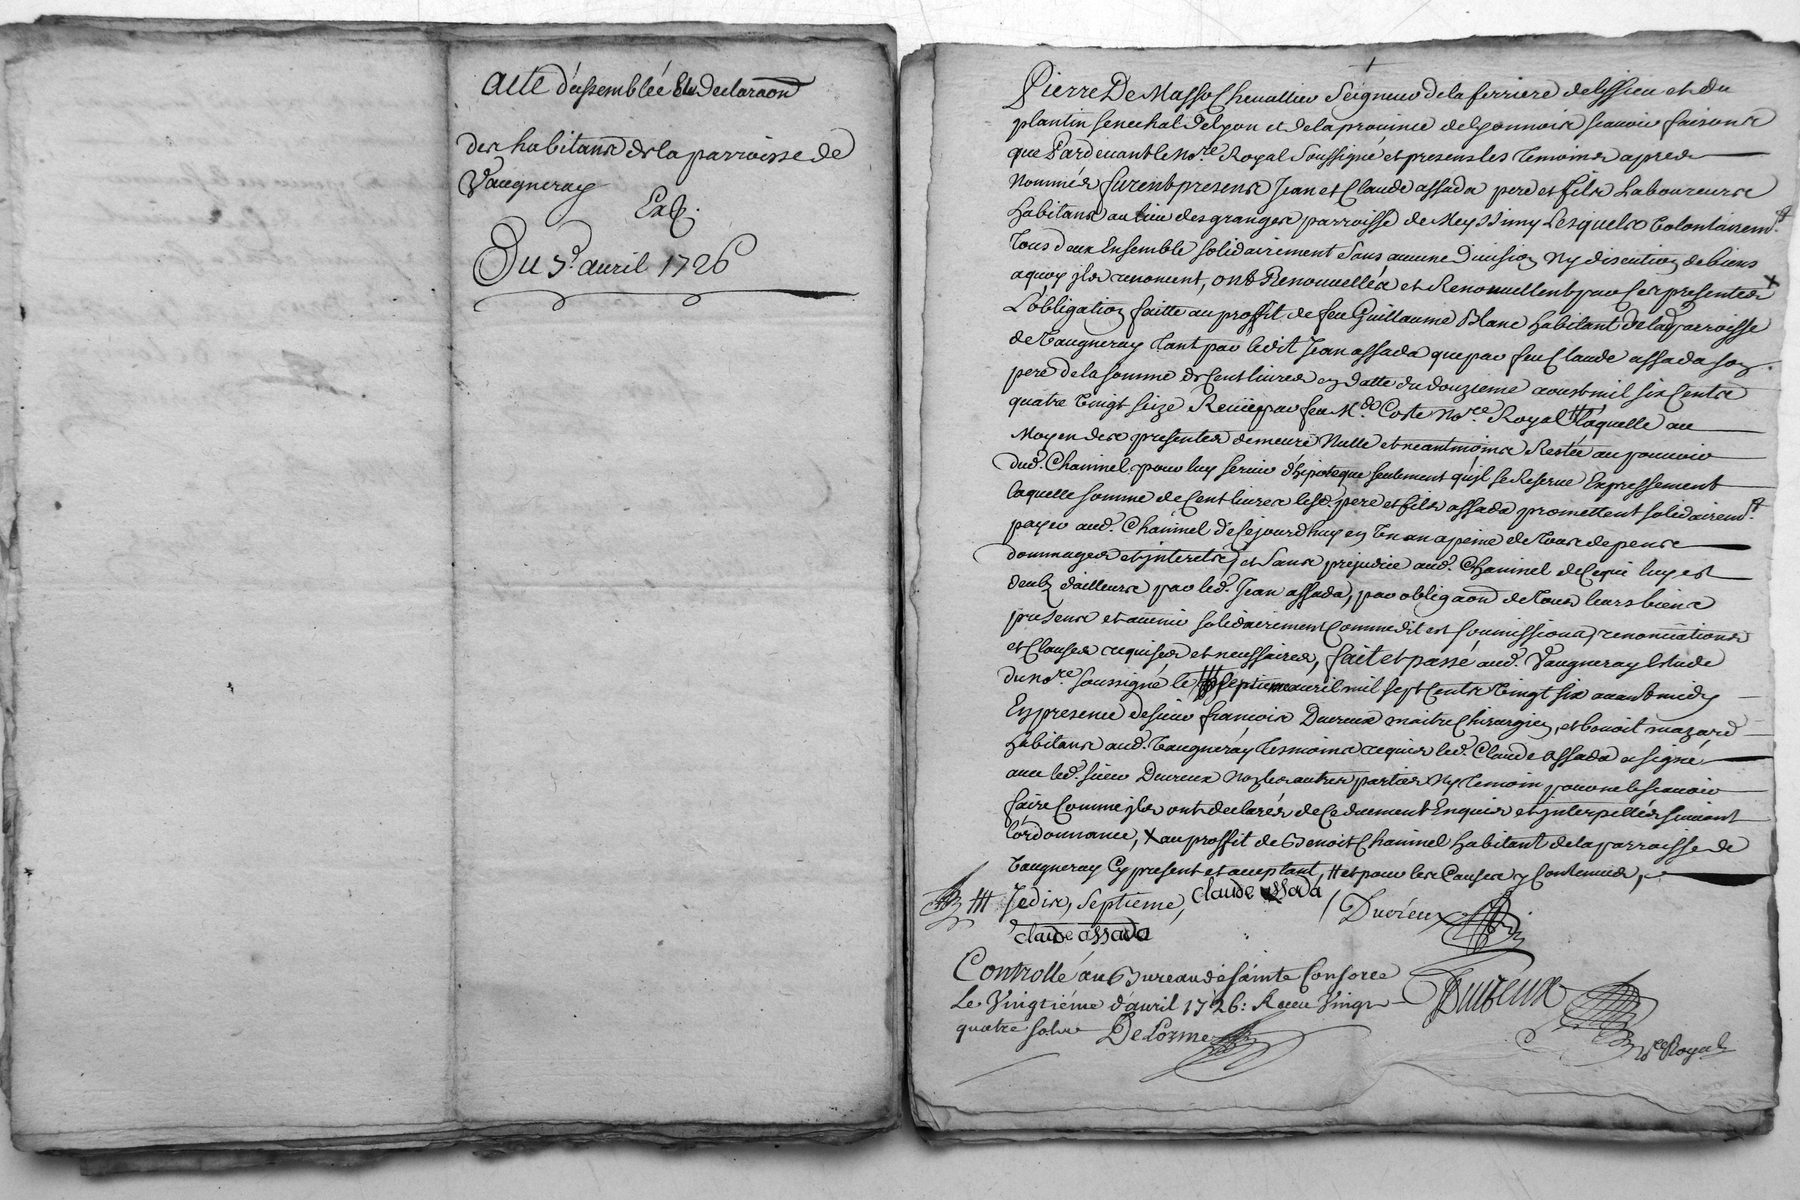 Acte d'assemblée Et declaraon
des habitans de la parroisse de
Vaugneray
Exp.
Du 7e. avril 1726
Pierre De Masso Chevallier Seigneur de la ferriere de lissieu et du
plantin senechal de lyon et de la province de lyonnois scavoir faisons
que Pardevant le No.re Royal Soussigné et presens les temoins apres
Nommés furent presens Jean et Claude assada pere et fils Laboureurs
habitans au lieu des granges parroisse de Meyssimy Lesquels volontairem.t
tous deux Ensemble solidairement Sans aucune division Ny discution de biens
a quoy ils renoncent, ont Renouvellés et Renouvellent par Ces presentes X
L'obligation faitte au proffit de feu Guillaume Blanc habitant de la Parroisse
de Vaugneray tant par ledit Jean assada que par feu Claude assada son
pere de la somme de Cent livres en datte du douzieme aoust mil six Cents
quatre vingt seize Receüe par feu M.e Coste No.re Royal # laquelle au
Moyen des presentes demeure Nulle et neantmoins Restée au pouvoir
dud. Chaninel pour luy servir d'hipoteque seulement qu'il se Reserve Expressement
laquelle somme de Cent livres lesd. pere et fils assada promettent solidairem.t
payer aud. Chaninel de Cejourd'huy en Un an a peine de tous depens
dommages et interets, et Sans prejudice aud. Chaninel de Ce qui luy est
deub d'ailleurs par led. Jean assada, par obligaon de tous leurs biens
presens et avenir solidairement Comme dit est soumissions, renonciations
et Clauses requises et necessaires, fait et passé aud. Vaugneray Estude
du no.re soussigné le # septieme avril mil sept Cents vingt six avant midy
En presence de sieur françois Ducreux maitre Chirurgien, et benoit mazard
habitans aud. Vaugneray temoins requis led. Claude assada a signé
avec led. sieur Ducreux Non les autres parties Ny temoin pour ne le scavoir
faire Comme ils ont declarés de Ce duement Enquis et interpellés suivant
l'ordonnance, X au proffit de Benoit Chaninel habitant de la parroisse de
Vaugneray Cy present et acceptant, # et pour les Causes y Contenües,
# Je dis, septieme, claude assada / Ducreux
claude assada
Controllé au Bureau de Sainte Consorce
Le Vingtiéme d'avril 1726: Receu Vingt
quatre sols DeLorme
Ducreux
N.re Royal